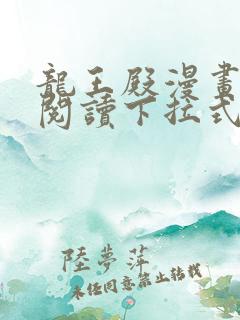 龍王殿漫畫
閱讀下拉式
陸夢萍
未經同意禁止轉載